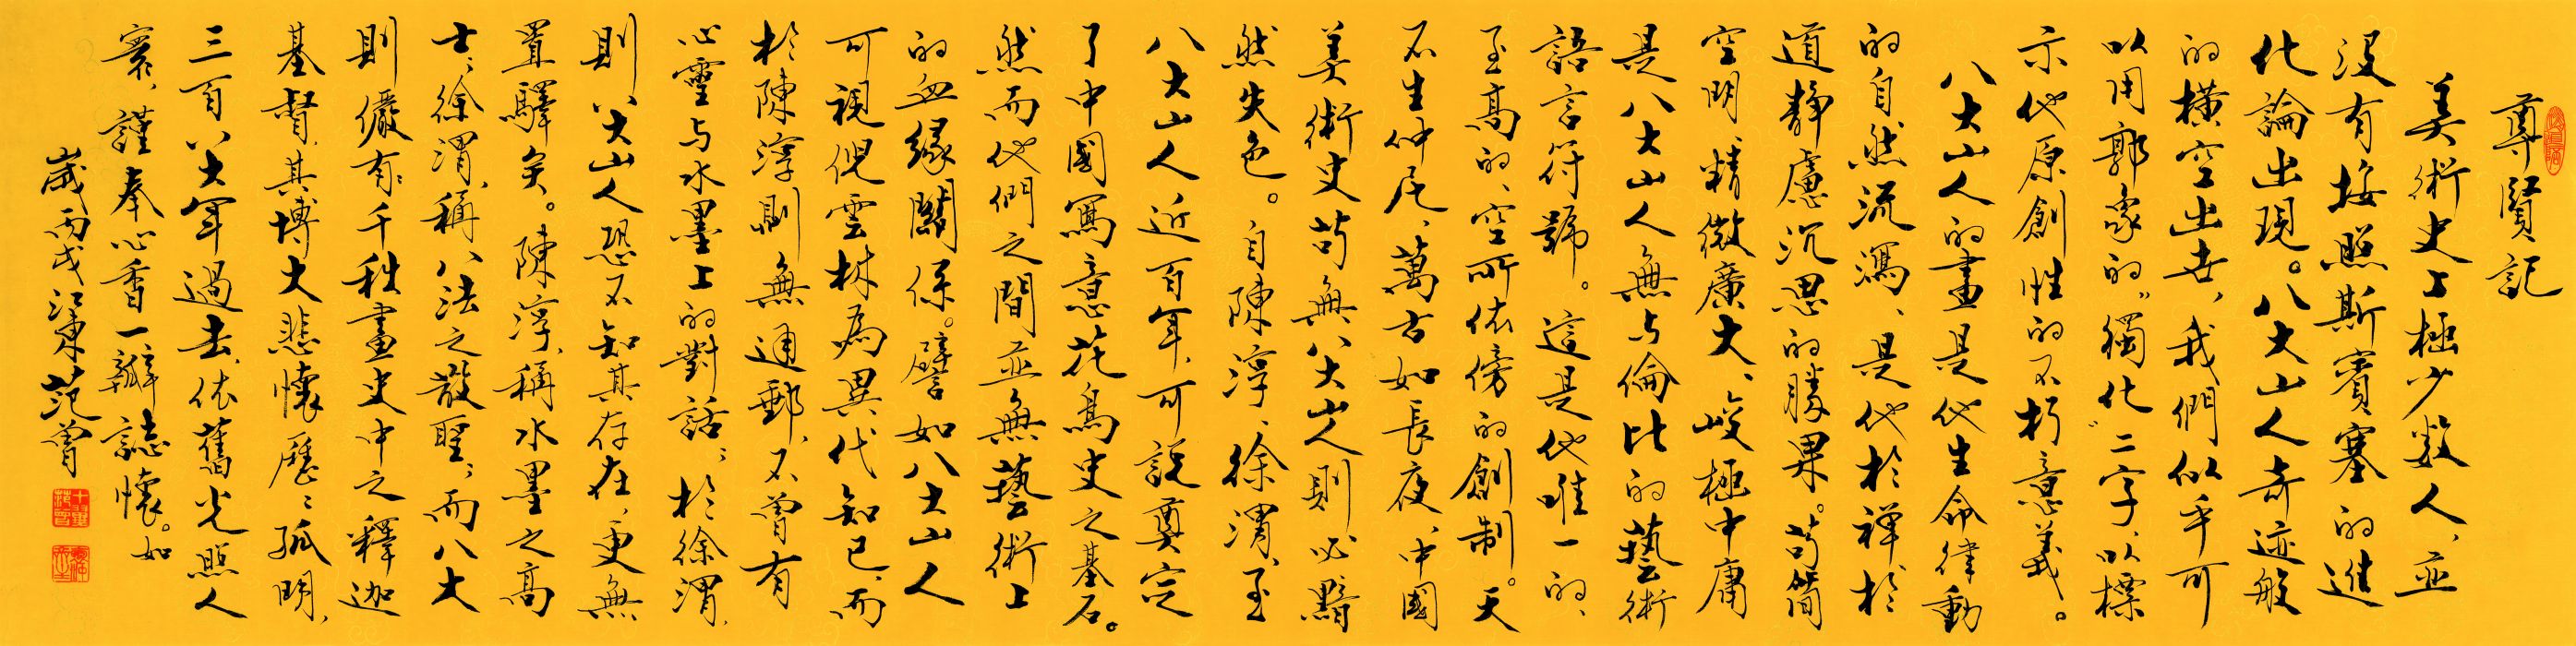 尊賢記
美術史上極少数人、並
没有按照斯賓塞的進
化論出現。八大山人奇迹般
的橫空出世，我們似乎可
以用郭象的“獨化”二字，以標
示他原創性的不朽意義。
八大山人的畫是他生命律動
的自然流瀉、是他於禪於
道靜慮沉思的勝果。苟簡
空明、精微廣大、峻極中庸
是八大山人無与倫比的藝術
語言符號。這是他唯一的、
至高的、空所依傍的創制。天
不生仲尼、萬古如長夜、中國
美術史苟無八大山人則必黯
然失色。自陳淳、徐渭、至
八大山人近百年、可説奠定
了中國寫意花鳥史之基石。
然而他們之間並無藝術上
的血緣關係。譬如八大山人
可視倪雲林為異代知已、而
於陳淳則無通郵、不曾有
心靈与水墨上的對話、於徐渭、
則八大山人恐不知其存在、更無
置驛矣。陳淳、稱水墨之高
士、徐渭、稱八法之散聖、而八大
則儼有千秩畫史中之釋迦
基督、其博大悲懷、歷歷孤明、
三百八大年過去、依舊光照人
寰、謹奉心香一瓣誌懷。如
歲丙戌江東范曾